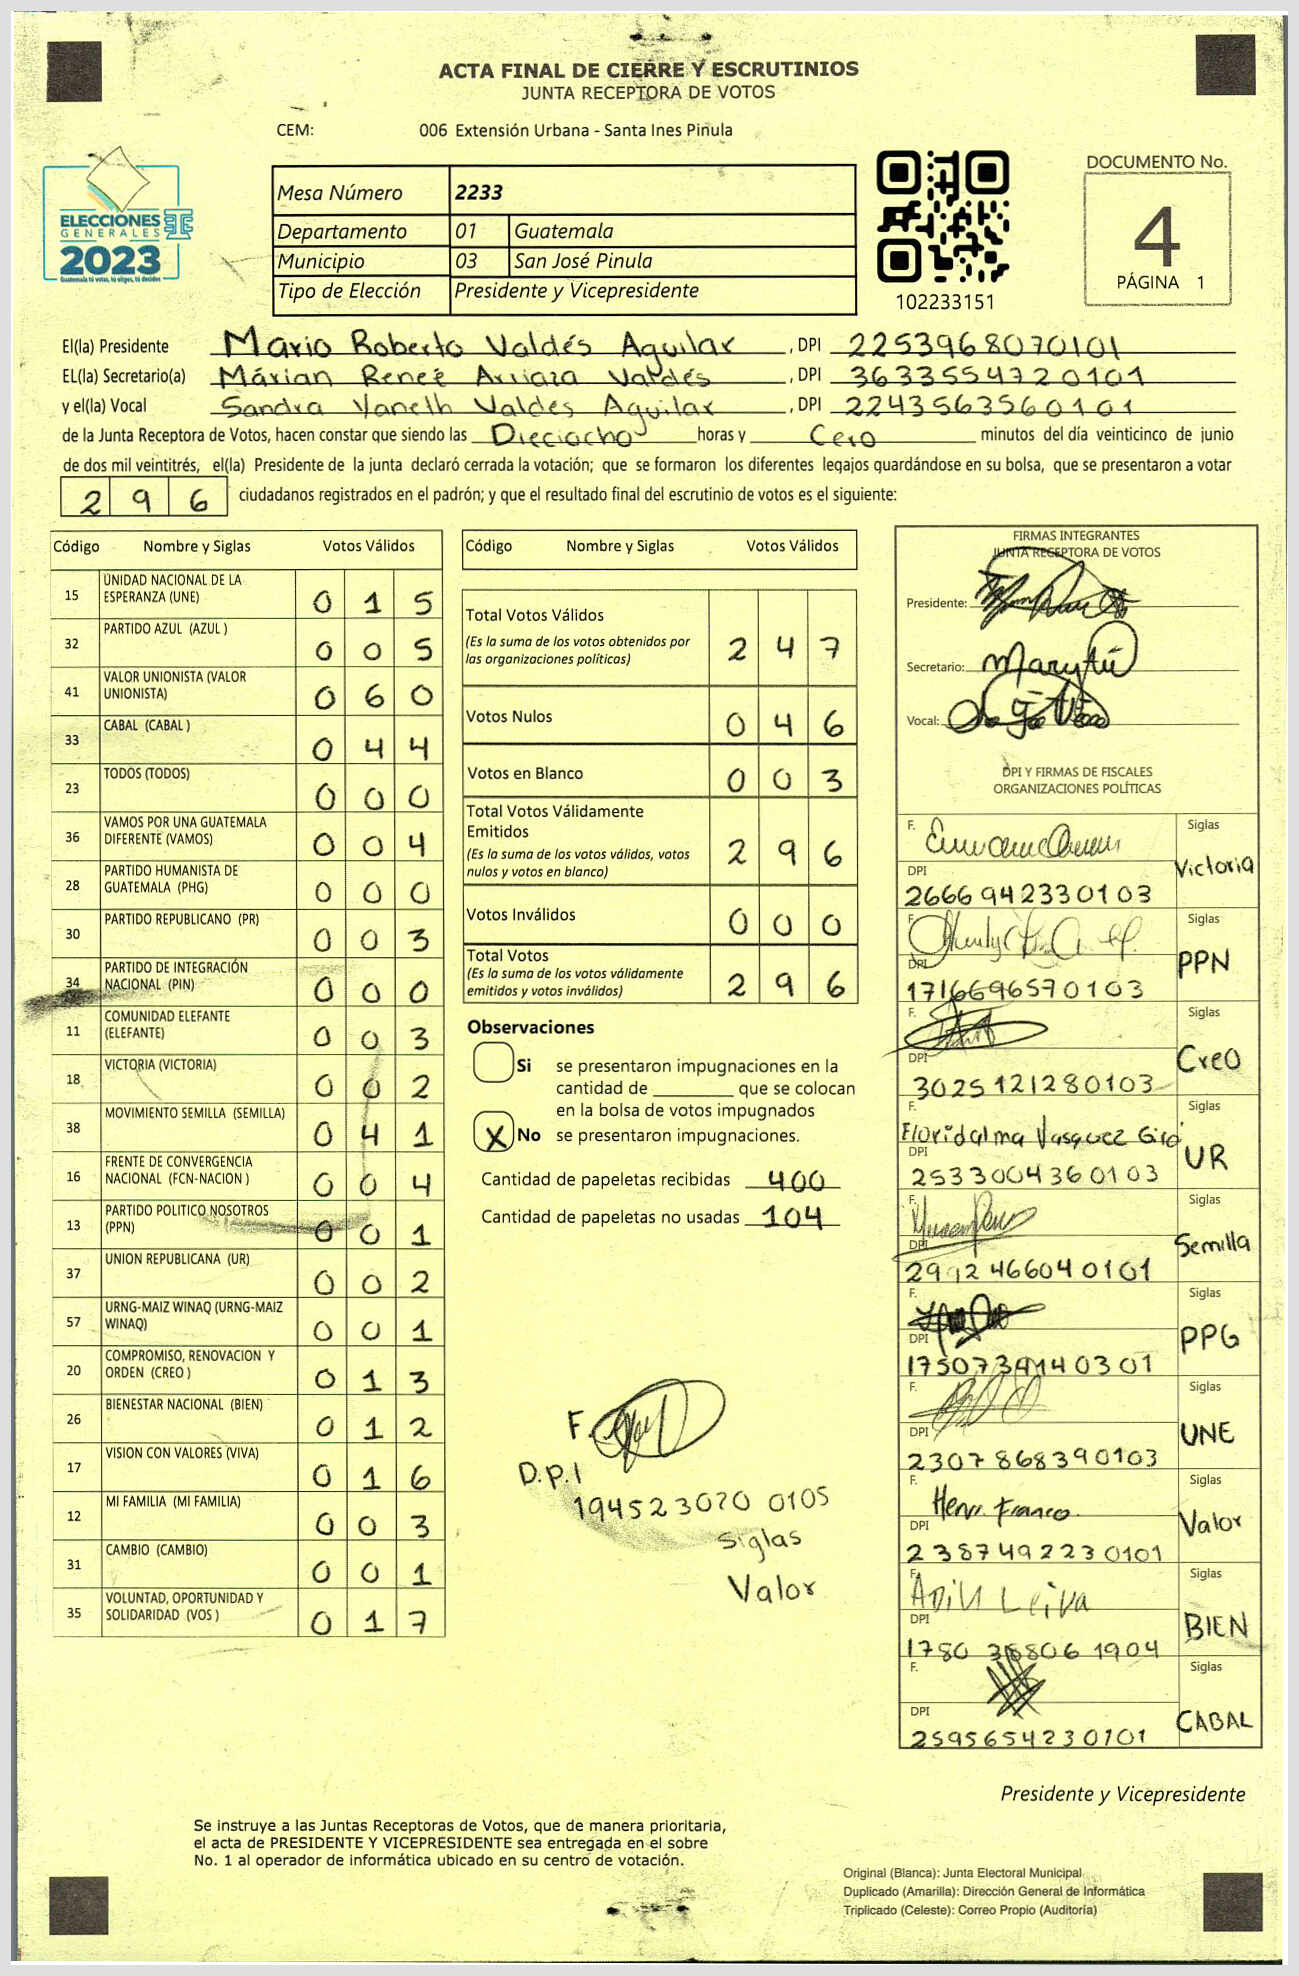 ACTA FINAL DE CIERRE Y ESCRUTINIOS
JUNTA RECEPTORA DE VOTOS
CEM: 006 Extensión Urbana - Santa Ines Pinula
ELECCIONES
GENERALES
2023
Guatemala tú votas, tú eliges, tú decides
Mesa Número 2233
Departamento 01 Guatemala
Municipio 03 San José Pinula
Tipo de Elección Presidente y Vicepresidente
102233151
DOCUMENTO No.
4
PÁGINA 1
El(la) Presidente Mario Roberto Valdés Aguilar , DPI 2253968070101
EL(la) Secretario(a) Márian Reneé Arriaza Valdés , DPI 3633554720101
y el(la) Vocal Sandra Yaneth Valdes Aguilar , DPI 2243563560101
de la Junta Receptora de Votos, hacen constar que siendo las Dieciocho horas y Cero minutos del día veinticinco de junio
de dos mil veintitrés, el(la) Presidente de la junta declaró cerrada la votación; que se formaron los diferentes legajos guardándose en su bolsa, que se presentaron a votar
296 ciudadanos registrados en el padrón; y que el resultado final del escrutinio de votos es el siguiente:
Código Nombre y Siglas Votos Válidos
15 UNIDAD NACIONAL DE LA ESPERANZA (UNE) 0 1 5
32 PARTIDO AZUL (AZUL ) 0 0 5
41 VALOR UNIONISTA (VALOR UNIONISTA) 0 6 0
33 CABAL (CABAL ) 0 4 4
23 TODOS (TODOS) 0 0 0
36 VAMOS POR UNA GUATEMALA DIFERENTE (VAMOS) 0 0 4
28 PARTIDO HUMANISTA DE GUATEMALA (PHG) 0 0 0
30 PARTIDO REPUBLICANO (PR) 0 0 3
34 PARTIDO DE INTEGRACIÓN NACIONAL (PIN) 0 0 0
11 COMUNIDAD ELEFANTE (ELEFANTE) 0 0 3
18 VICTORIA (VICTORIA) 0 0 2
38 MOVIMIENTO SEMILLA (SEMILLA) 0 4 1
16 FRENTE DE CONVERGENCIA NACIONAL (FCN-NACION ) 0 0 4
13 PARTIDO POLITICO NOSOTROS (PPN) 0 0 1
37 UNION REPUBLICANA (UR) 0 0 2
57 URNG-MAIZ WINAQ (URNG-MAIZ WINAQ) 0 0 1
20 COMPROMISO, RENOVACION Y ORDEN (CREO ) 0 1 3
26 BIENESTAR NACIONAL (BIEN) 0 1 2
17 VISION CON VALORES (VIVA) 0 1 6
12 MI FAMILIA (MI FAMILIA) 0 0 3
31 CAMBIO (CAMBIO) 0 0 1
35 VOLUNTAD, OPORTUNIDAD Y SOLIDARIDAD (VOS ) 0 1 7
Código Nombre y Siglas Votos Válidos
Total Votos Válidos 2 4 7
(Es la suma de los votos obtenidos por
las organizaciones políticas)
Votos Nulos 0 4 6
Votos en Blanco 0 0 3
Total Votos Válidamente
Emitidos 2 9 6
(Es la suma de los votos válidos, votos
nulos y votos en blanco)
Votos Inválidos 0 0 0
Total Votos 2 9 6
(Es la suma de los votos válidamente
emitidos y votos inválidos)
Observaciones
Si se presentaron impugnaciones en la
cantidad de ________ que se colocan
en la bolsa de votos impugnados
X No se presentaron impugnaciones.
Cantidad de papeletas recibidas 400
Cantidad de papeletas no usadas 104
F.
D.p.I
194523070 0105
Siglas
Valor
FIRMAS INTEGRANTES
JUNTA RECEPTORA DE VOTOS
Presidente:
Secretario:
Vocal:
DPI Y FIRMAS DE FISCALES
ORGANIZACIONES POLÍTICAS
F. Siglas
Victoria
DPI
2666 942330103
F. Siglas
PPN
DPI
1716696570103
F. Siglas
CreO
DPI
3025 121280103
F. Siglas
Floridalma Vasquez
UR
DPI
2533004360103
F. Siglas
Semilla
DPI
2992 466040101
F. Siglas
PPG
DPI
F. Siglas
UNE
DPI
2307 868390103
F. Siglas
Henri Franco
Valor
DPI
2387492230101
F. Siglas
Leiva
BIEN
DPI
F. Siglas
CABAL
DPI
2595654230101
Presidente y Vicepresidente
Se instruye a las Juntas Receptoras de Votos, que de manera prioritaria,
el acta de PRESIDENTE Y VICEPRESIDENTE sea entregada en el sobre
No. 1 al operador de informática ubicado en su centro de votación.
Original (Blanca): Junta Electoral Municipal
Duplicado (Amarilla): Dirección General de Informática
Triplicado (Celeste): Correo Propio (Auditoría)